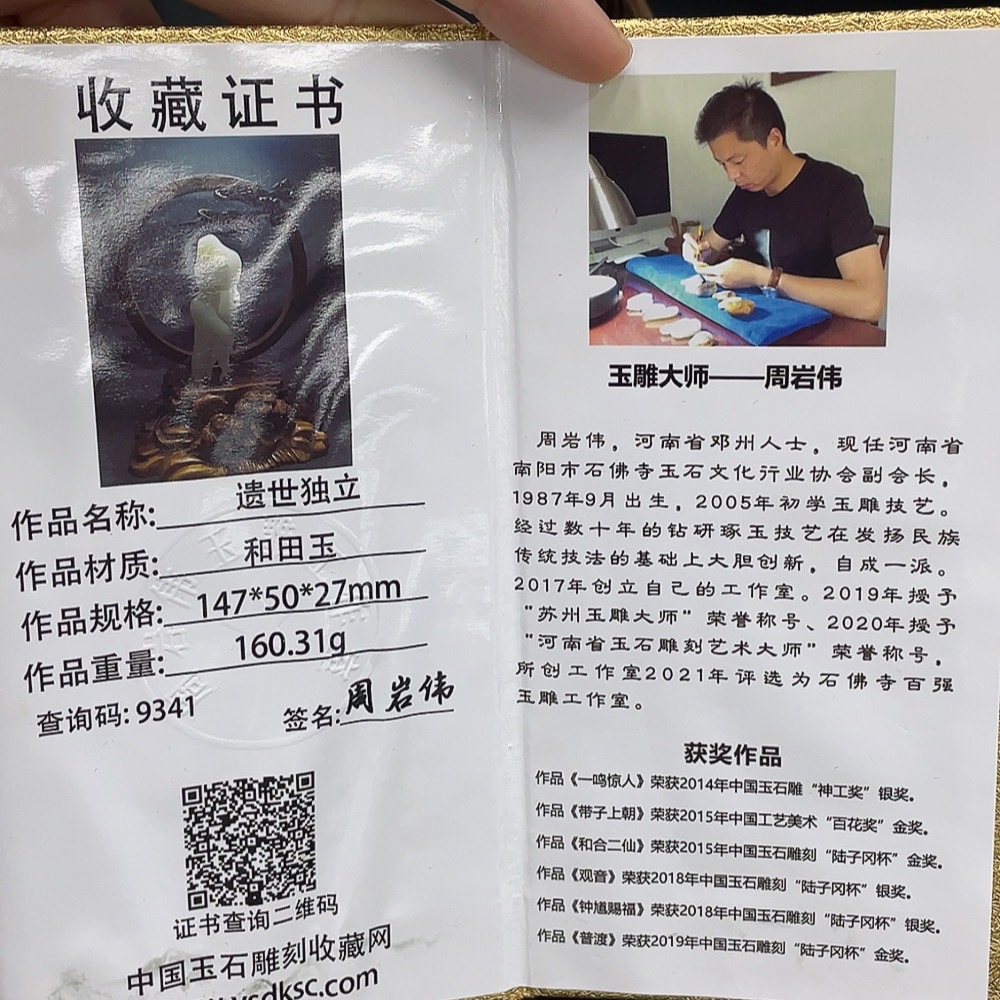 收藏证书
作品名称:遗世独立
作品材质:和田玉
作品规格:147*50*27mm
作品重量:160.31g
查询码:9341 签名:周岩伟
证书查询二维码
中国玉石雕刻收藏网
ysdksc.com
玉雕大师——周岩伟
周岩伟，河南省邓州人士，现任河南省
南阳市石佛寺玉石文化行业协会副会长，
1987年9月出生，2005年初学玉雕技艺。
经过数十年的钻研琢玉技艺在发扬民族
传统技法的基础上大胆创新，自成一派。
2017年创立自己的工作室。2019年授予
“苏州玉雕大师”荣誉称号、2020年授予
“河南省玉石雕刻艺术大师”荣誉称号，
所创工作室2021年评选为石佛寺百强
玉雕工作室。
获奖作品
作品《一鸣惊人》荣获2014年中国玉石雕“神工奖”银奖。
作品《带子上朝》荣获2015年中国工艺美术“百花奖”金奖。
作品《和合二仙》荣获2015年中国玉石雕刻“陆子冈杯”金奖。
作品《观音》荣获2018年中国玉石雕刻“陆子冈杯”银奖。
作品《钟馗赐福》荣获2018年中国玉石雕刻“陆子冈杯”银奖。
作品《普渡》荣获2019年中国玉石雕刻“陆子冈杯”金奖。